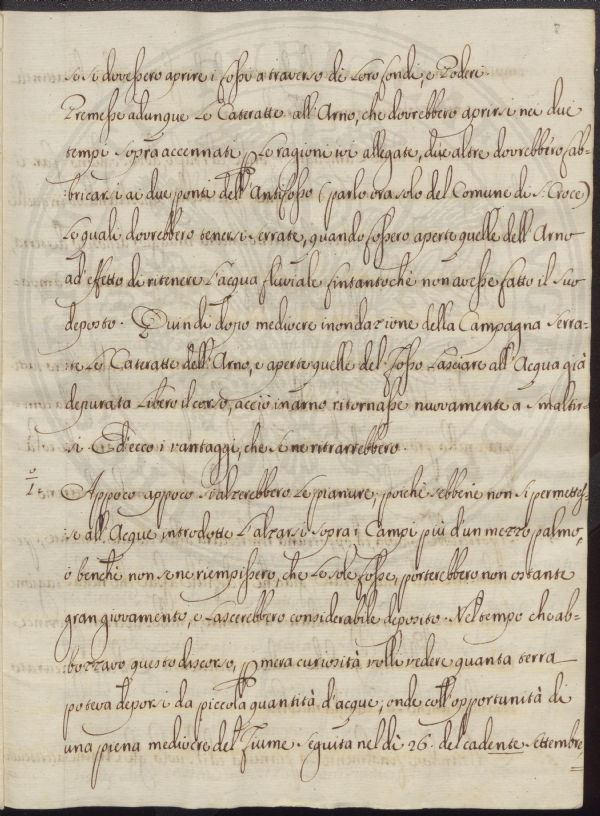 se si dovessero aprire i fossi a traverso de loro fondi, e Poderi.
Premesse adunque le Cateratte all'Arno, che dovrebbero aprirsi nei due
tempi sopra accennati p le ragioni ivi allegate, due altre dovrebbero fab-
:bricarsi ai due ponti dell'Antifosso (parlo ora solo del Comune di S: Croce)
le quali dovrebbero tenersi serrate, quando fossero aperte quelle dell'Arno
ad'effetto di ritenere l'acqua fluviale fintantochè non avesse fatto il suo
deposto. Quindi dopo mediocre inondazione della Campagna serra-
:te le Cateratte dell'Arno, e aperte quelle del fosso lasciare all'Acqua già
depurata libero il corso, acciò in arno ritornasse nuovamente a smaltir-
si. Ed'ecco i vantaggi, che se ne ritrarrebbero.
1.º Appoco appoco s'alzerebbero le pianure, poichè sebbene non si permettes-
:se all'Acque introdotte l'alzarsi sopra i Campi più d'un mezzo palmo,
o benchè non se ne riempissero, che le sole fosse, porterebbero non ostante
gran giovamento, e lascerebbero considerabile deposito. Nel tempo che ab-
:bozzavo questo discorso, p mera curiosità volli vedere quanta terra
poteva deporsi da piccola quantità d'acque; onde coll'opportunità di
una piena mediocre del Fiume seguita nel dì 26. del cadente Settembre,